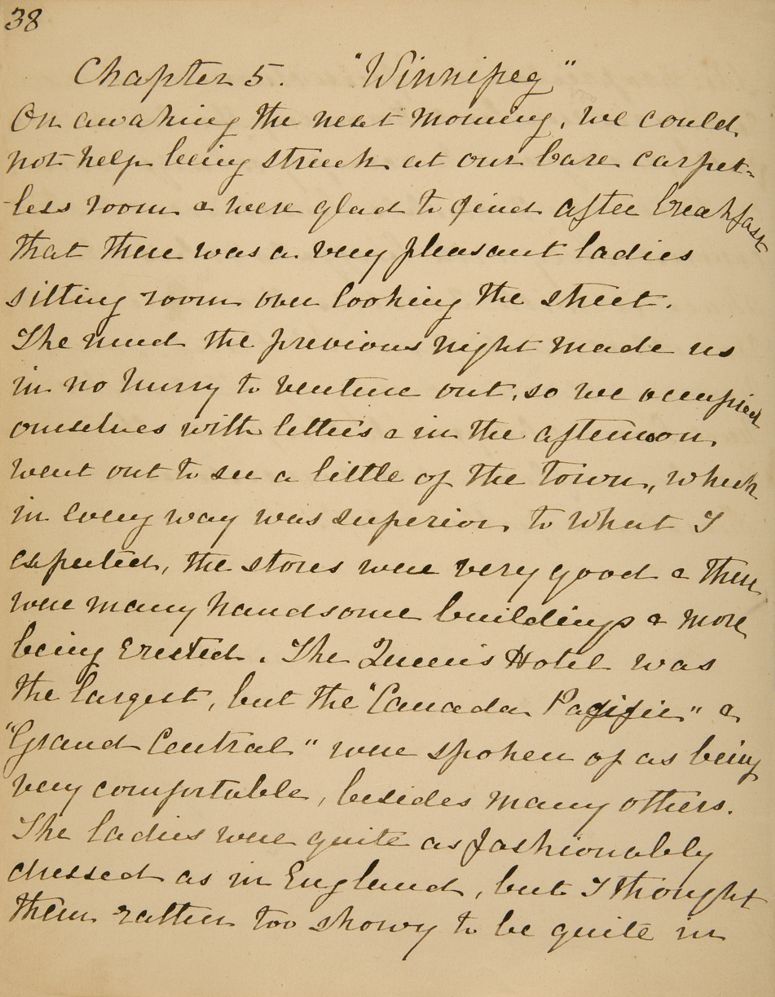 38
Chapter 5. "Winnipeg"
On awaking the next morning, we could
not help being struck at our bare carpet-
-less room & were glad to find after breakfast
that there was a very pleasant ladies
sitting room over looking the street.
The mud the previous night made us
in no hurry to venture out, so we occupied
ourselves with letters & in the afternoon
went out to see a little of the town, which
in every way was superior to what I
expected, the stores were very good & there
were many handsome buildings & more
being erected. The Queen's Hotel was
the largest, but the "Canada Pacific" &
"Grand Central" were spoken of as being
very comfortable, besides many others.
The ladies were quite as fashionably
dressed as in England, but I thought
them rather too showy to be quite in